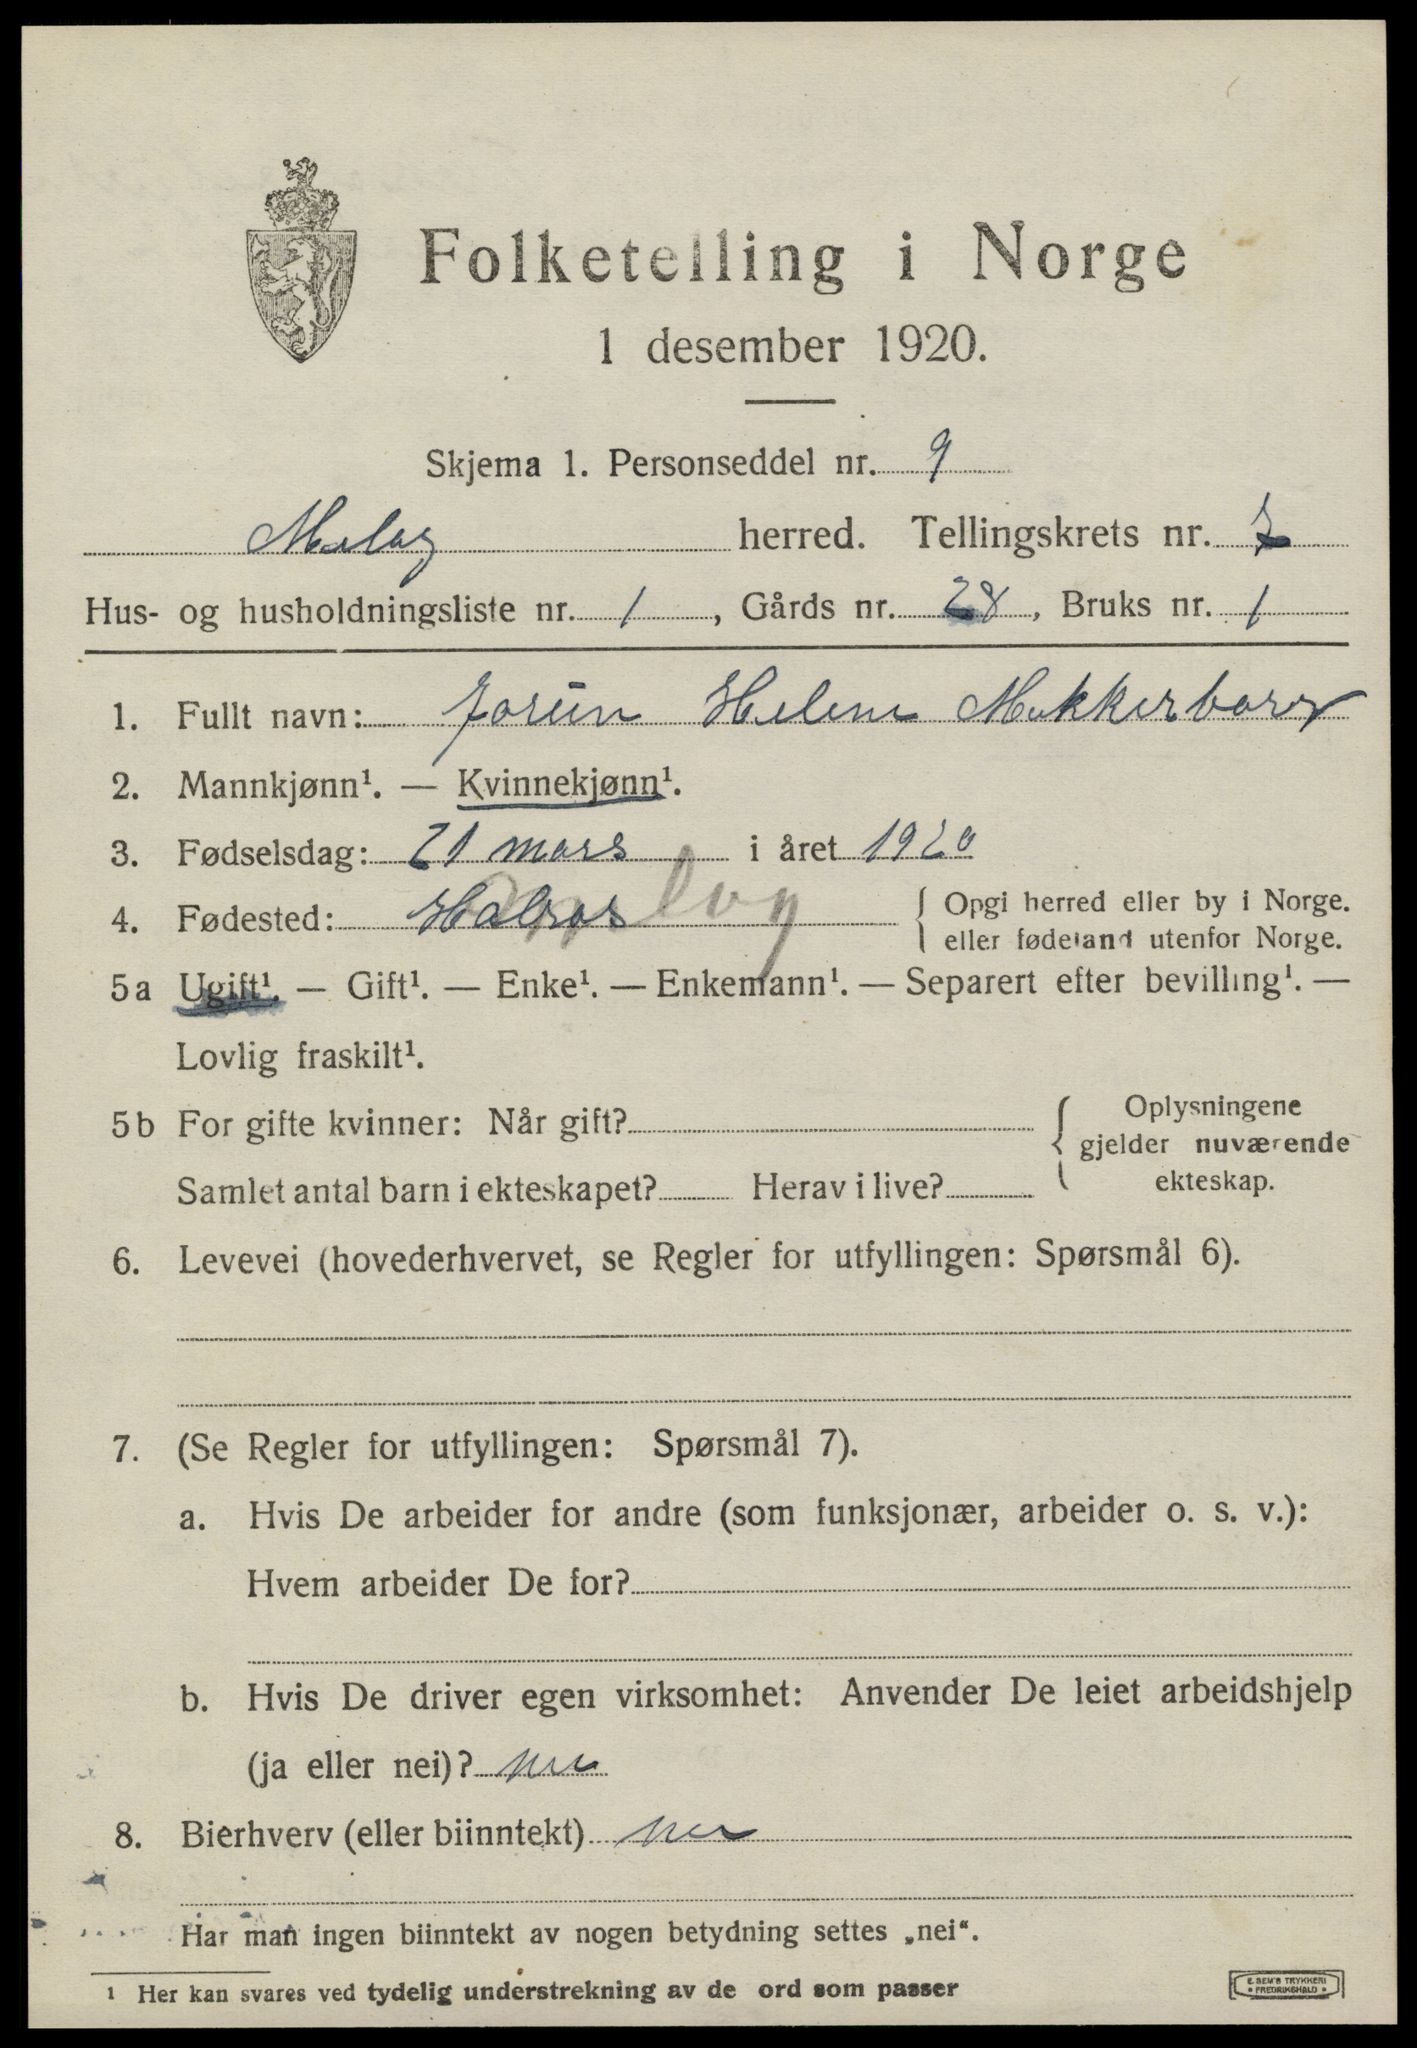 Folketelling i Norge
1 desember 1920.
Skjema 1. Personseddel nr. 9
herred. Tellingskrets nr.
Hus- og husholdningsliste nr. 1, Gårds nr. 28, Bruks nr. 1
1. Fullt navn: Jorün Helene
2. Mannkjønn¹. — Kvinnekjønn¹.
3. Fødselsdag: 21 mars i året 1920
4. Fødested: { Opgi herred eller by i Norge.
eller fødeland utenfor Norge.
5a Ugift¹. — Gift¹. — Enke¹. — Enkemann¹. — Separert efter bevilling¹. —
Lovlig fraskilt¹.
5b For gifte kvinner: Når gift? { Oplysningene
gjelder nuværende
Samlet antal barn i ekteskapet? Herav i live? ekteskap.
6. Levevei (hovederhvervet, se Regler for utfyllingen: Spørsmål 6).
7. (Se Regler for utfyllingen: Spørsmål 7).
a. Hvis De arbeider for andre (som funksjonær, arbeider o. s. v.):
Hvem arbeider De for?
b. Hvis De driver egen virksomhet: Anvender De leiet arbeidshjelp
(ja eller nei)? nei
8. Bierhverv (eller biinntekt) nei
Har man ingen biinntekt av nogen betydning settes „nei“.
1 Her kan svares ved tydelig understrekning av de ord som passer
E. SEM'S TRYKKERI
• FREDRIKSHALD •